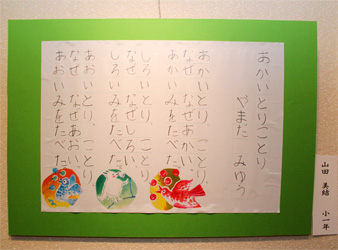 あかいとりことり
やまだ みゆう
あかいとり、ことり
なぜ なぜあかい。
あかいみをたべた。
しろいとり、ことり
なぜ なぜしろい。
しろいみをたべた。
あおいとり、ことり
なぜ なぜあおい。
あおいみをたべた。
山田 美結 小一年